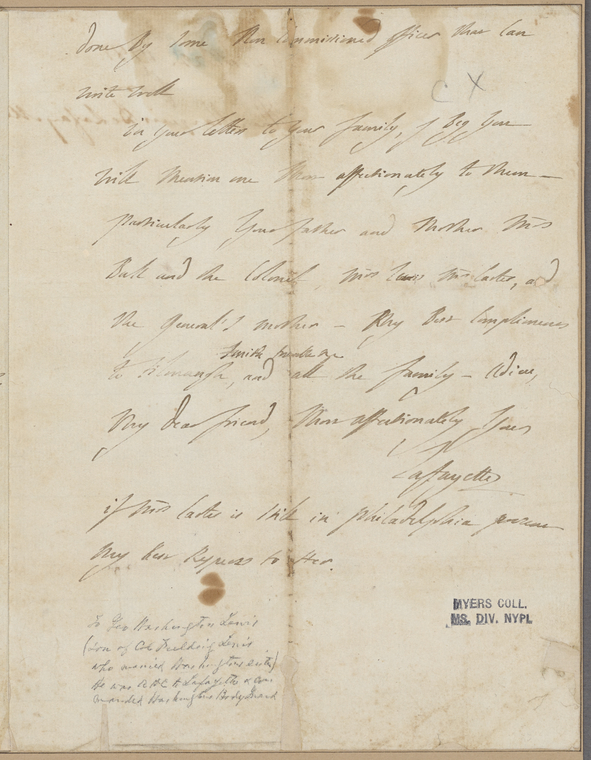 done by some Non Commissioned officer that can
write well
In your letters to your family, I beg you
will Mention me Most affectionately to them —
particularly your father and Mother, Mrs
Ball and the Colonel, Mrs Lewis Mrs Carter, and
the General's mother — My Best Compliments
Smith
to and all the family — Adieu,
My Dear friend, Most affectionately Yours
Lafayette
if Mrs Carter is still in philadelphia present
My best Respects to Her.
C X
To Geo Washington Lewis
(son of Col Fielding Lewis
who married Washingtons sister)
He was A.D.C. to Lafayette & com
manded Washingtons Body Guard
MYERS COLL.
MS. DIV. NYPL